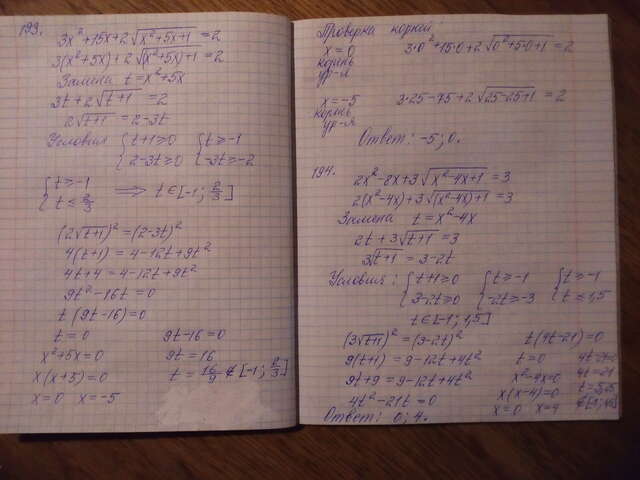 193.
3x²+15x+2√(x²+5x+1)=2
3(x²+5x)+2√((x²+5x)+1)=2
Замена t=x²+5x
3t+2√(t+1)=2
2√(t+1)=2-3t
Условия {t+1≥0 {t≥-1
{2-3t≥0 {-3t≥-2
{t≥-1
{t≤2/3 ⟹ t∈[-1; 2/3]
(2√(t+1))²=(2-3t)²
4(t+1)=4-12t+9t²
4t+4=4-12t+9t²
9t²-16t=0
t(9t-16)=0
t=0 9t-16=0
x²+5x=0 9t=16
x(x+5)=0 t=16/9∉[-1; 2/3]
x=0 x=-5
Проверка корней:
x=0 3·0²+15·0+2√(0²+5·0+1)=2
корень
ур-я
x=-5 3·25-75+2√(25-25+1)=2
корень
ур-я
Ответ: -5; 0.
194.
2x²-8x+3√(x²-4x+1)=3
2(x²-4x)+3√((x²-4x)+1)=3
Замена t=x²-4x
2t+3√(t+1)=3
3√(t+1)=3-2t
Условия: {t+1≥0 {t≥-1 {t≥-1
{3-2t≥0 {-2t≥-3 {t≤1,5
t∈[-1; 1,5]
(3√(t+1))²=(3-2t)²
9(t+1)=9-12t+4t²
9t+9=9-12t+4t²
4t²-21t=0
t(4t-21)=0
t=0 4t-21=0
x²-4x=0 4t=21
x(x-4)=0 t=5,25
x=0 x=4 ∉[-1; 1,5]
Ответ: 0; 4.